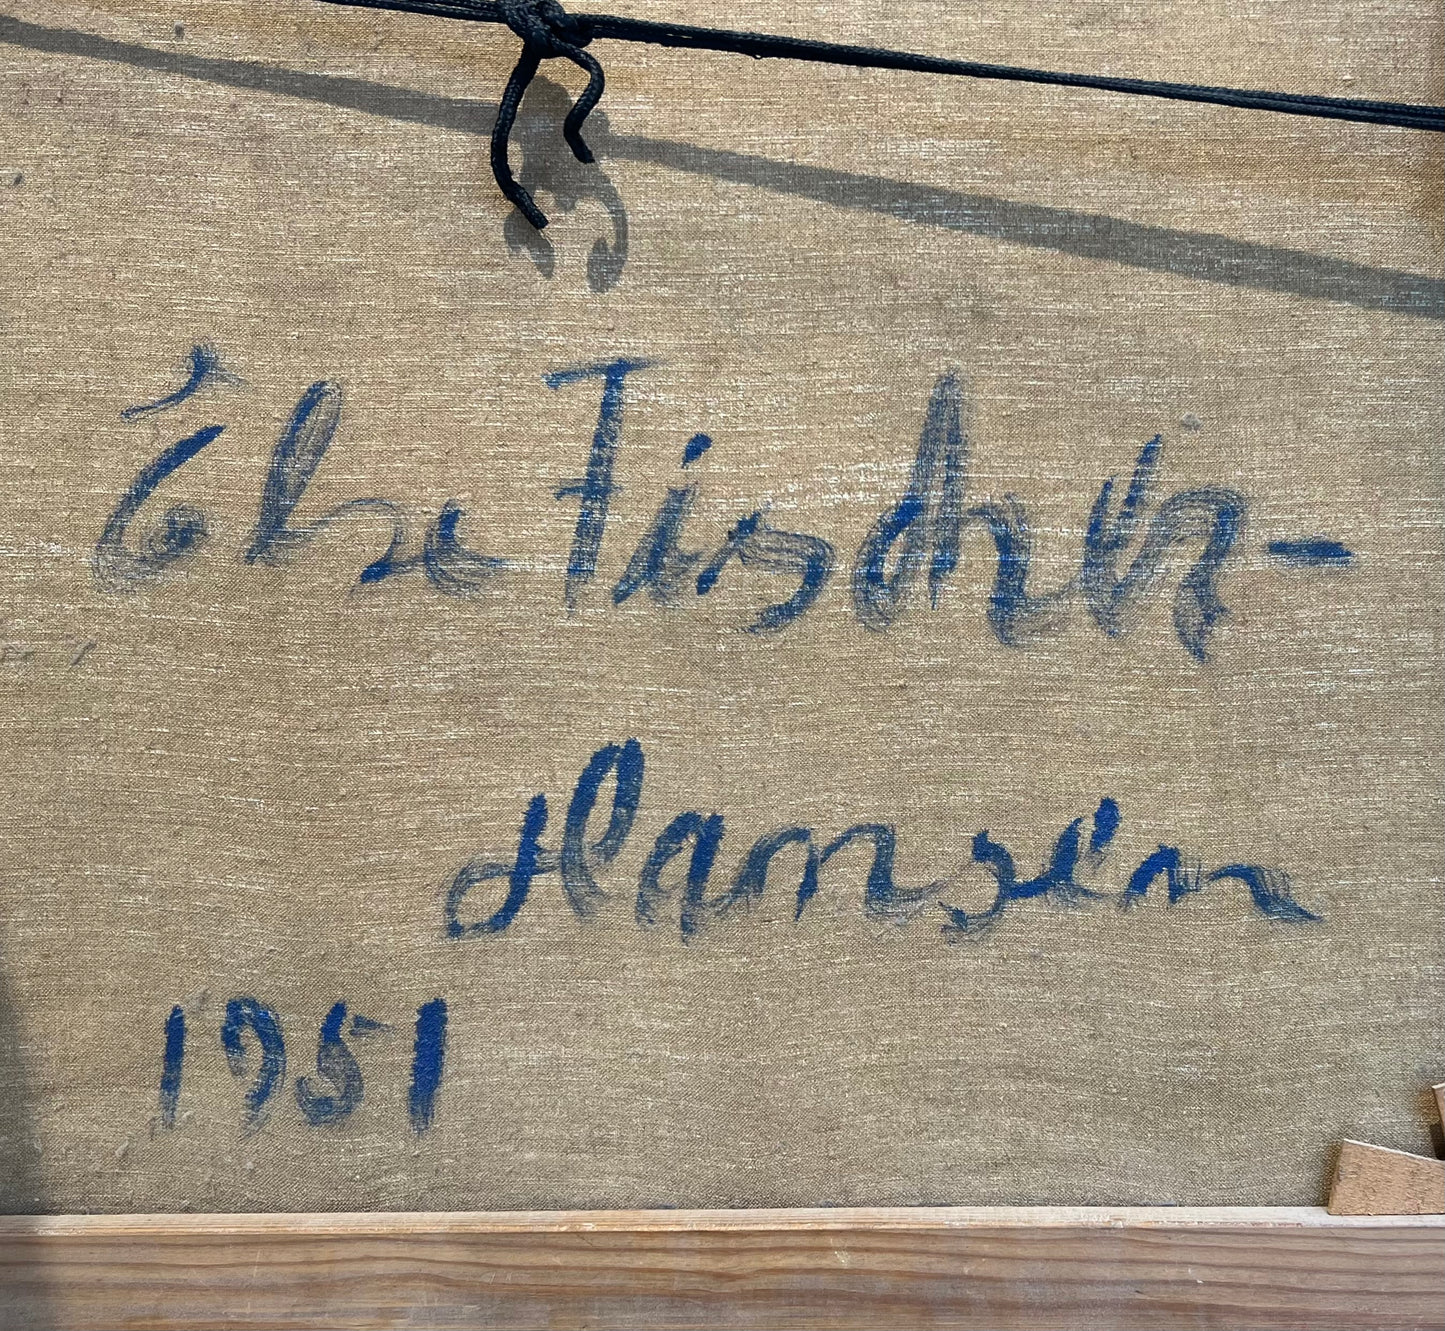 Else Fischer-
Hansen
1951